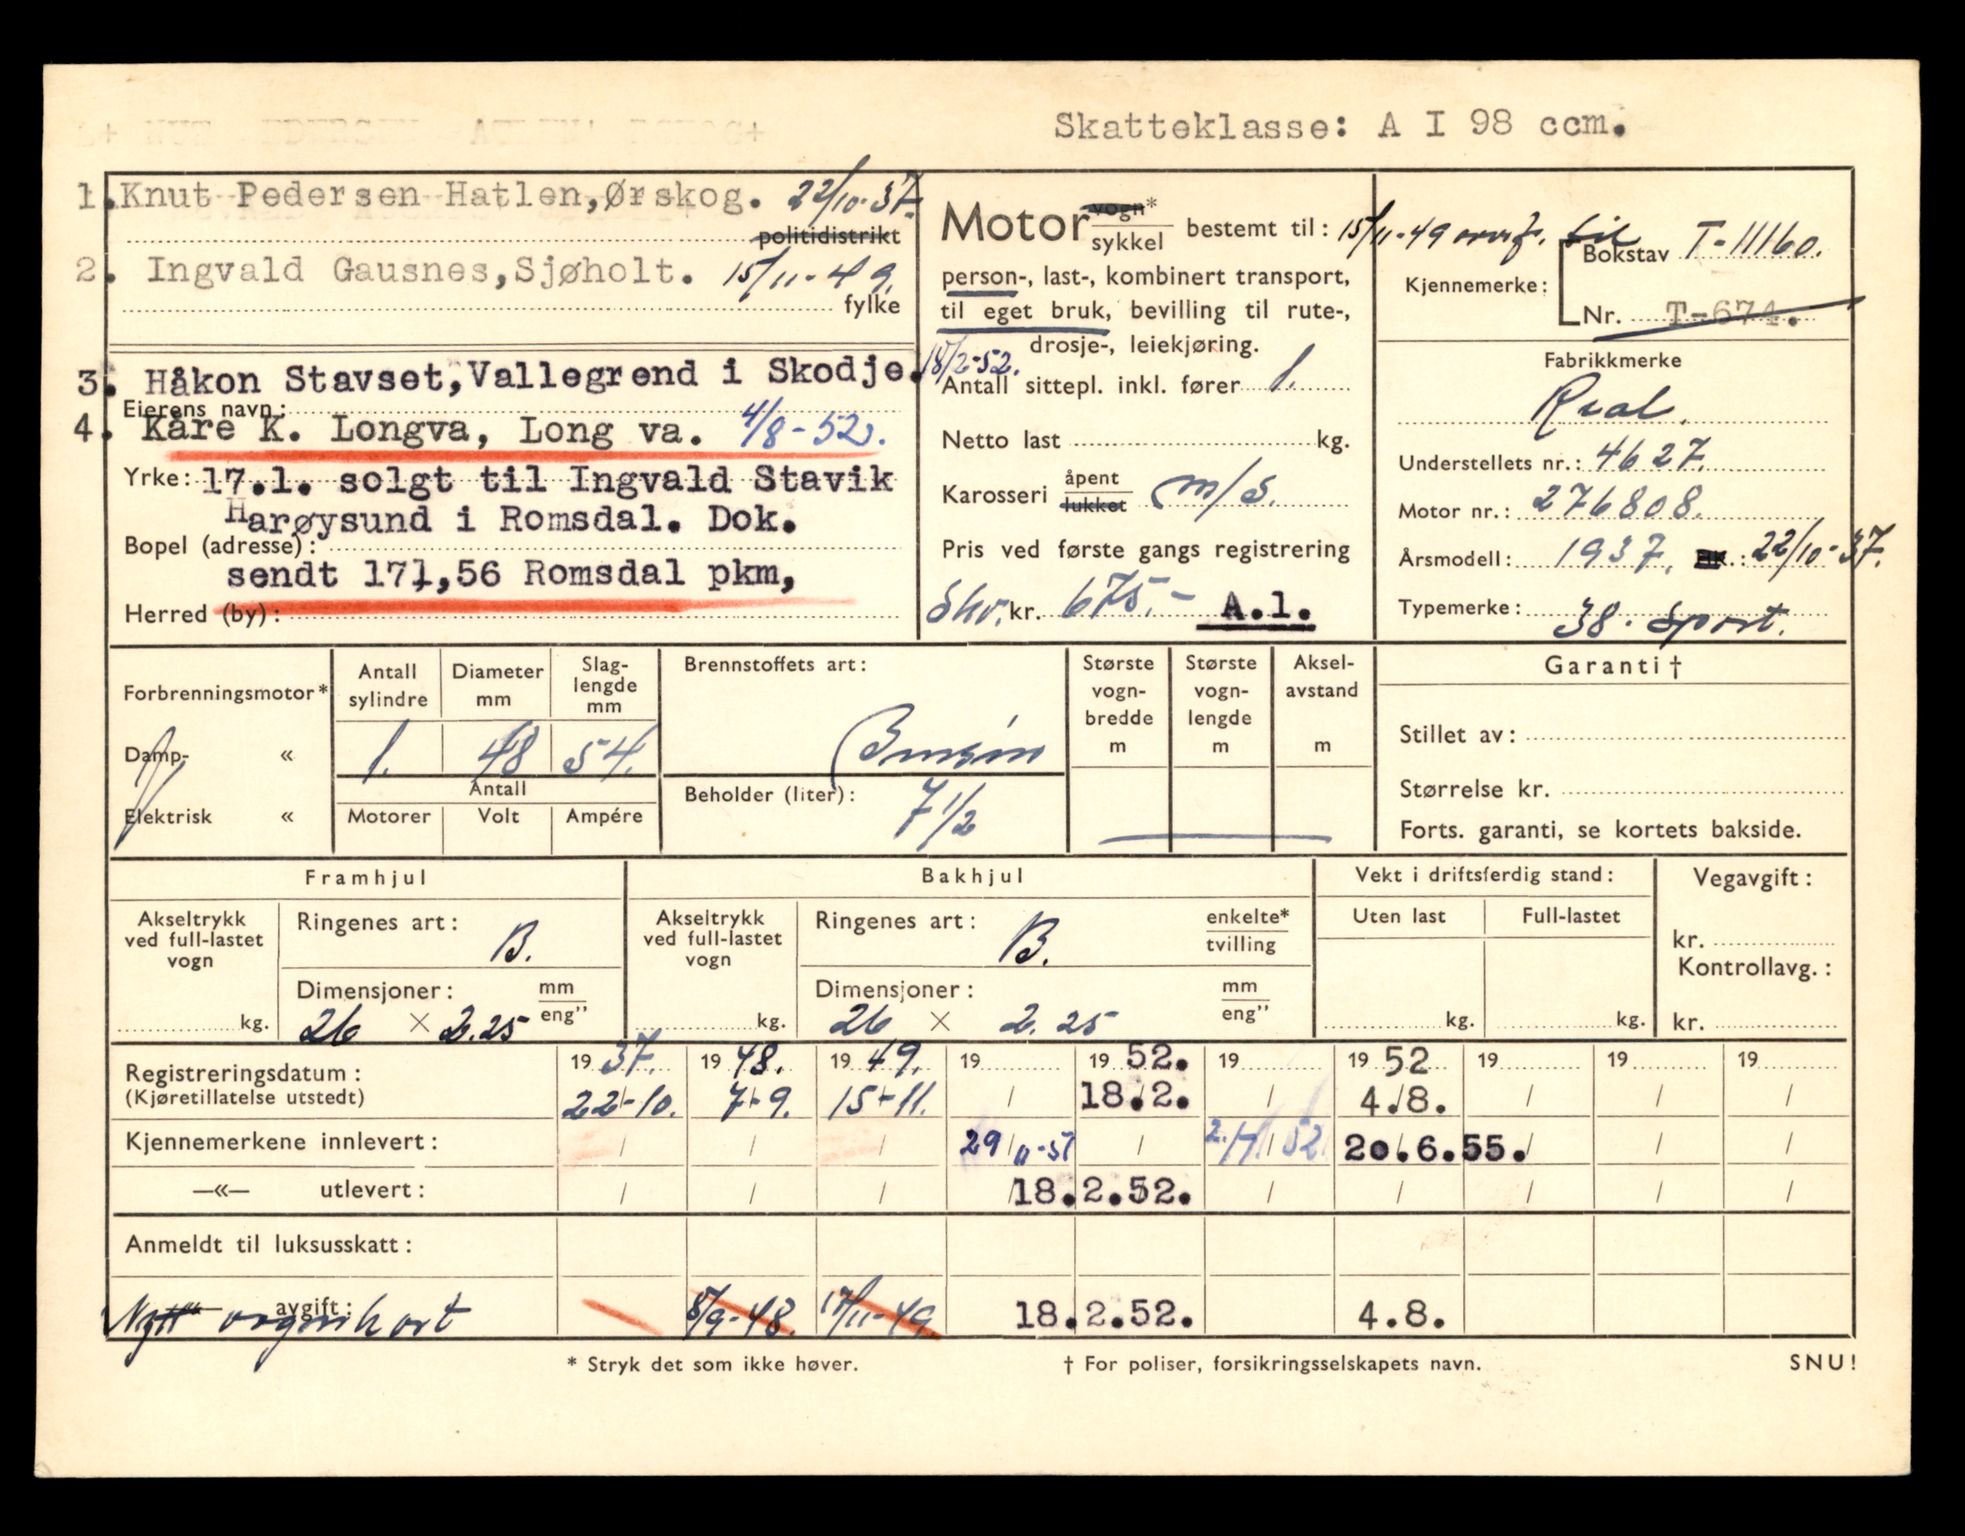 Skatteklasse: A I 98 ccm.
1. Knut Pedersen Hatlen, Ørskog. 22/10-37.
politidistrikt
2. Ingvald Gausnes, Sjøholt. 15/11-49.
fylke
3. Håkon Stavset, Vallegrend i Skodje. 18/2-52.
Eierens navn:
4. Kåre K. Longva, Long va. 4/8-52.
Yrke: 17.1. solgt til Ingvald Stavik
Harøysund i Romsdal. Dok.
Bopel (adresse):
sendt 171,56 Romsdal pkm,
Herred (by):
Motor vogn* sykkel bestemt til:
person-, last-, kombinert transport,
til eget bruk, bevilling til rute-,
drosje-, leiekjøring.
Antall sittepl. inkl. fører 1.
Netto last kg.
Karosseri åpent lukket m/s.
Pris ved første gangs registrering
Skv. kr. 675.- A.1.
15/11-49 overf. til
Kjennemerke: Bokstav T-11160.
Nr. T-674.
Fabrikkmerke
Real.
Understellets nr.: 4627.
Motor nr.: 276808.
Årsmodell: 1937. HK.: 22/10-37.
Typemerke: 38. Sport.
Forbrenningsmotor*
Damp- «
Elektrisk «
Antall sylindre Diameter mm Slag-lengde mm
1. 48 54.
Antall
Motorer Volt Ampére
Brennstoffets art:
Bensin
Beholder (liter): 7 1/2
Største vogn-bredde m
Største vogn-lengde m
Aksel-avstand m
Garanti †
Stillet av:
Størrelse kr.
Forts. garanti, se kortets bakside.
Framhjul
Akseltrykk ved full-lastet vogn kg.
Ringenes art: B.
Dimensjoner: mm eng”
26 × 2.25
Bakhjul
Akseltrykk ved full-lastet vogn kg.
Ringenes art: B. enkelte* tvilling
Dimensjoner: mm eng”
26 × 2.25
Vekt i driftsferdig stand:
Uten last Full-lastet
kg. kg.
Vegavgift:
kr.
Kontrollavg.:
kr.
Registreringsdatum: 1937. 1948. 1949. 19 1952. 19 1952 19 19 19
(Kjøretillatelse utstedt) 22-10. 7-9. 15-11. / 18.2. / 4.8. / / /
Kjennemerkene innlevert: / / / 29/11-51 / 52 20.6.55. / / /
—«— utlevert: / / / 18.2.52. / / / / /
Anmeldt til luksusskatt:
—«— avgift:
Nytt vognkort 8/9-48. 17/11-49. 18.2.52. 4.8.
* Stryk det som ikke høver. † For poliser, forsikringsselskapets navn. SNU!